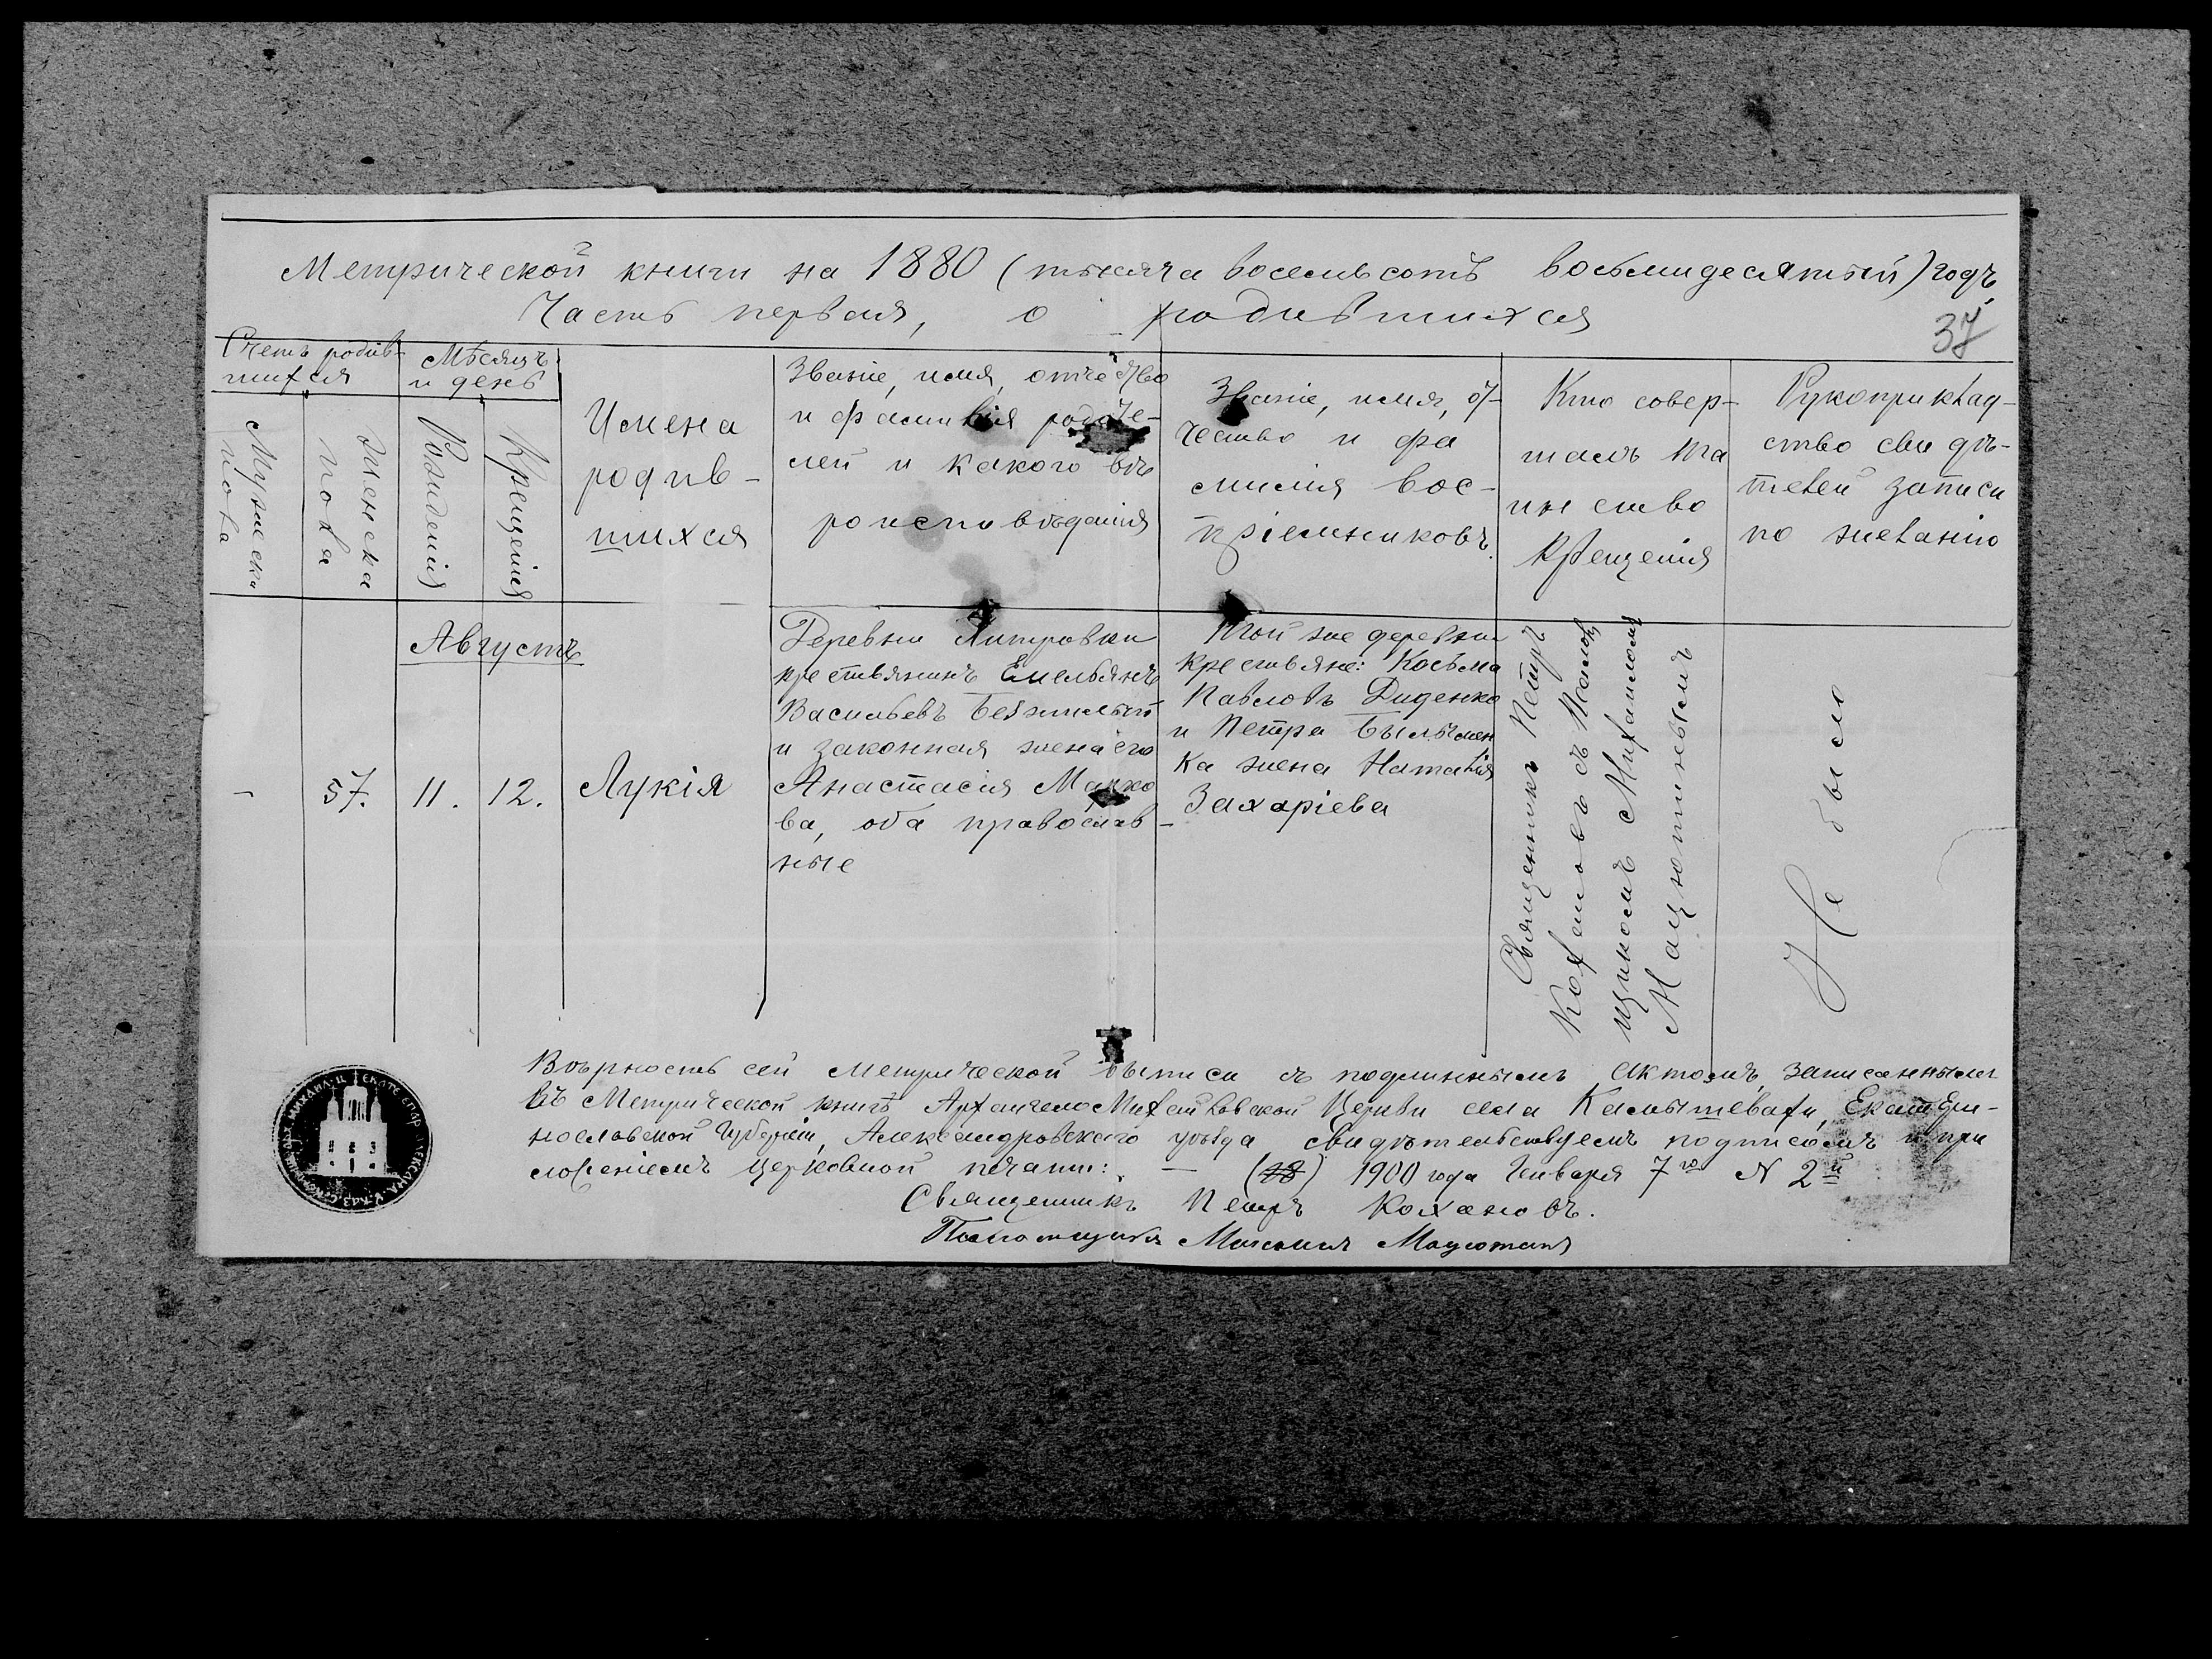 Метрической книги на 1880 (тысяча восемьсотъ восьмидесятый) годъ,
Часть первая, о родившихся
37
Счетъ родив-
шихся
Мужеска
пола
Женска
пола
Мѣсяцъ
и день
Рожденія
Крещенія
Имена
родив-
шихся
Званіе, имя, отчество
и фамилія родите-
лей и какого вѣ
роисповѣданія
Званіе, имя, от-
чество и фа
милия вос-
пріемниковъ.
Кто совер-
шалъ та
инство
крещенія
Рукоприклад-
ство свидѣ-
телей записи
по желанію
Августъ
-
57.
11.
12.
Лукія
Деревни
крестьянинъ Емельянъ
Васильевъ Безжилый
и законная жена его
Анастасія Марко
ва, оба православ-
ные
Той же деревни
крестьяне: Косьма
Павловъ Диденко
и Петра
ка жена Наталія
Захаріева
Священникъ Петръ
Кохановъ съ Помощ
щикомъ Михаиломъ
Мацютинымъ
Не было
Вѣрность сей метрической выписи съ подлиннымъ актомъ, записаннымъ
въ Метрической книгѣ Архангело Михайловской Церкви села Камышевахи, Екатери-
нославской Губерніи, Александровскаго уѣзда свидѣтельствуемъ подписомъ и при
ложеніемъ церковной печати: — (18) 1900 года Января 7го N 2й
Священникъ Петръ Кохановъ.
Михаилъ